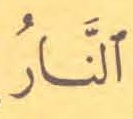 ٱلنَّارُ